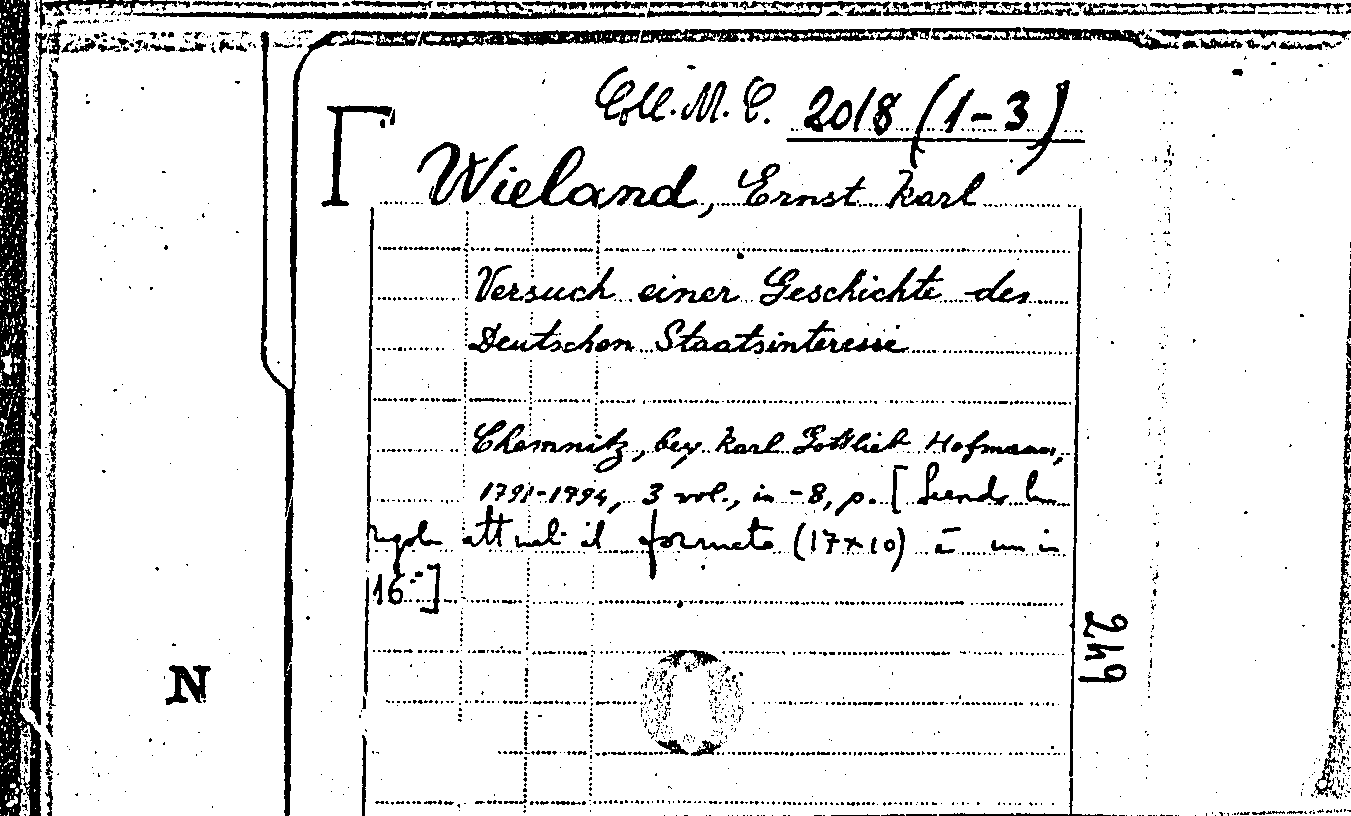 Coll. M. C. 2018 (1-3)
Wieland, Ernst Karl
Versuch einer Geschichte des
Deutschen Staatsinteresse
Chemnitz, bey Karl Gottlieb Hofmann,
1791-1794, 3 vol., in-8, p. [Secondo le
regole attuali il formato (17x10) è un in
16°]
249
N